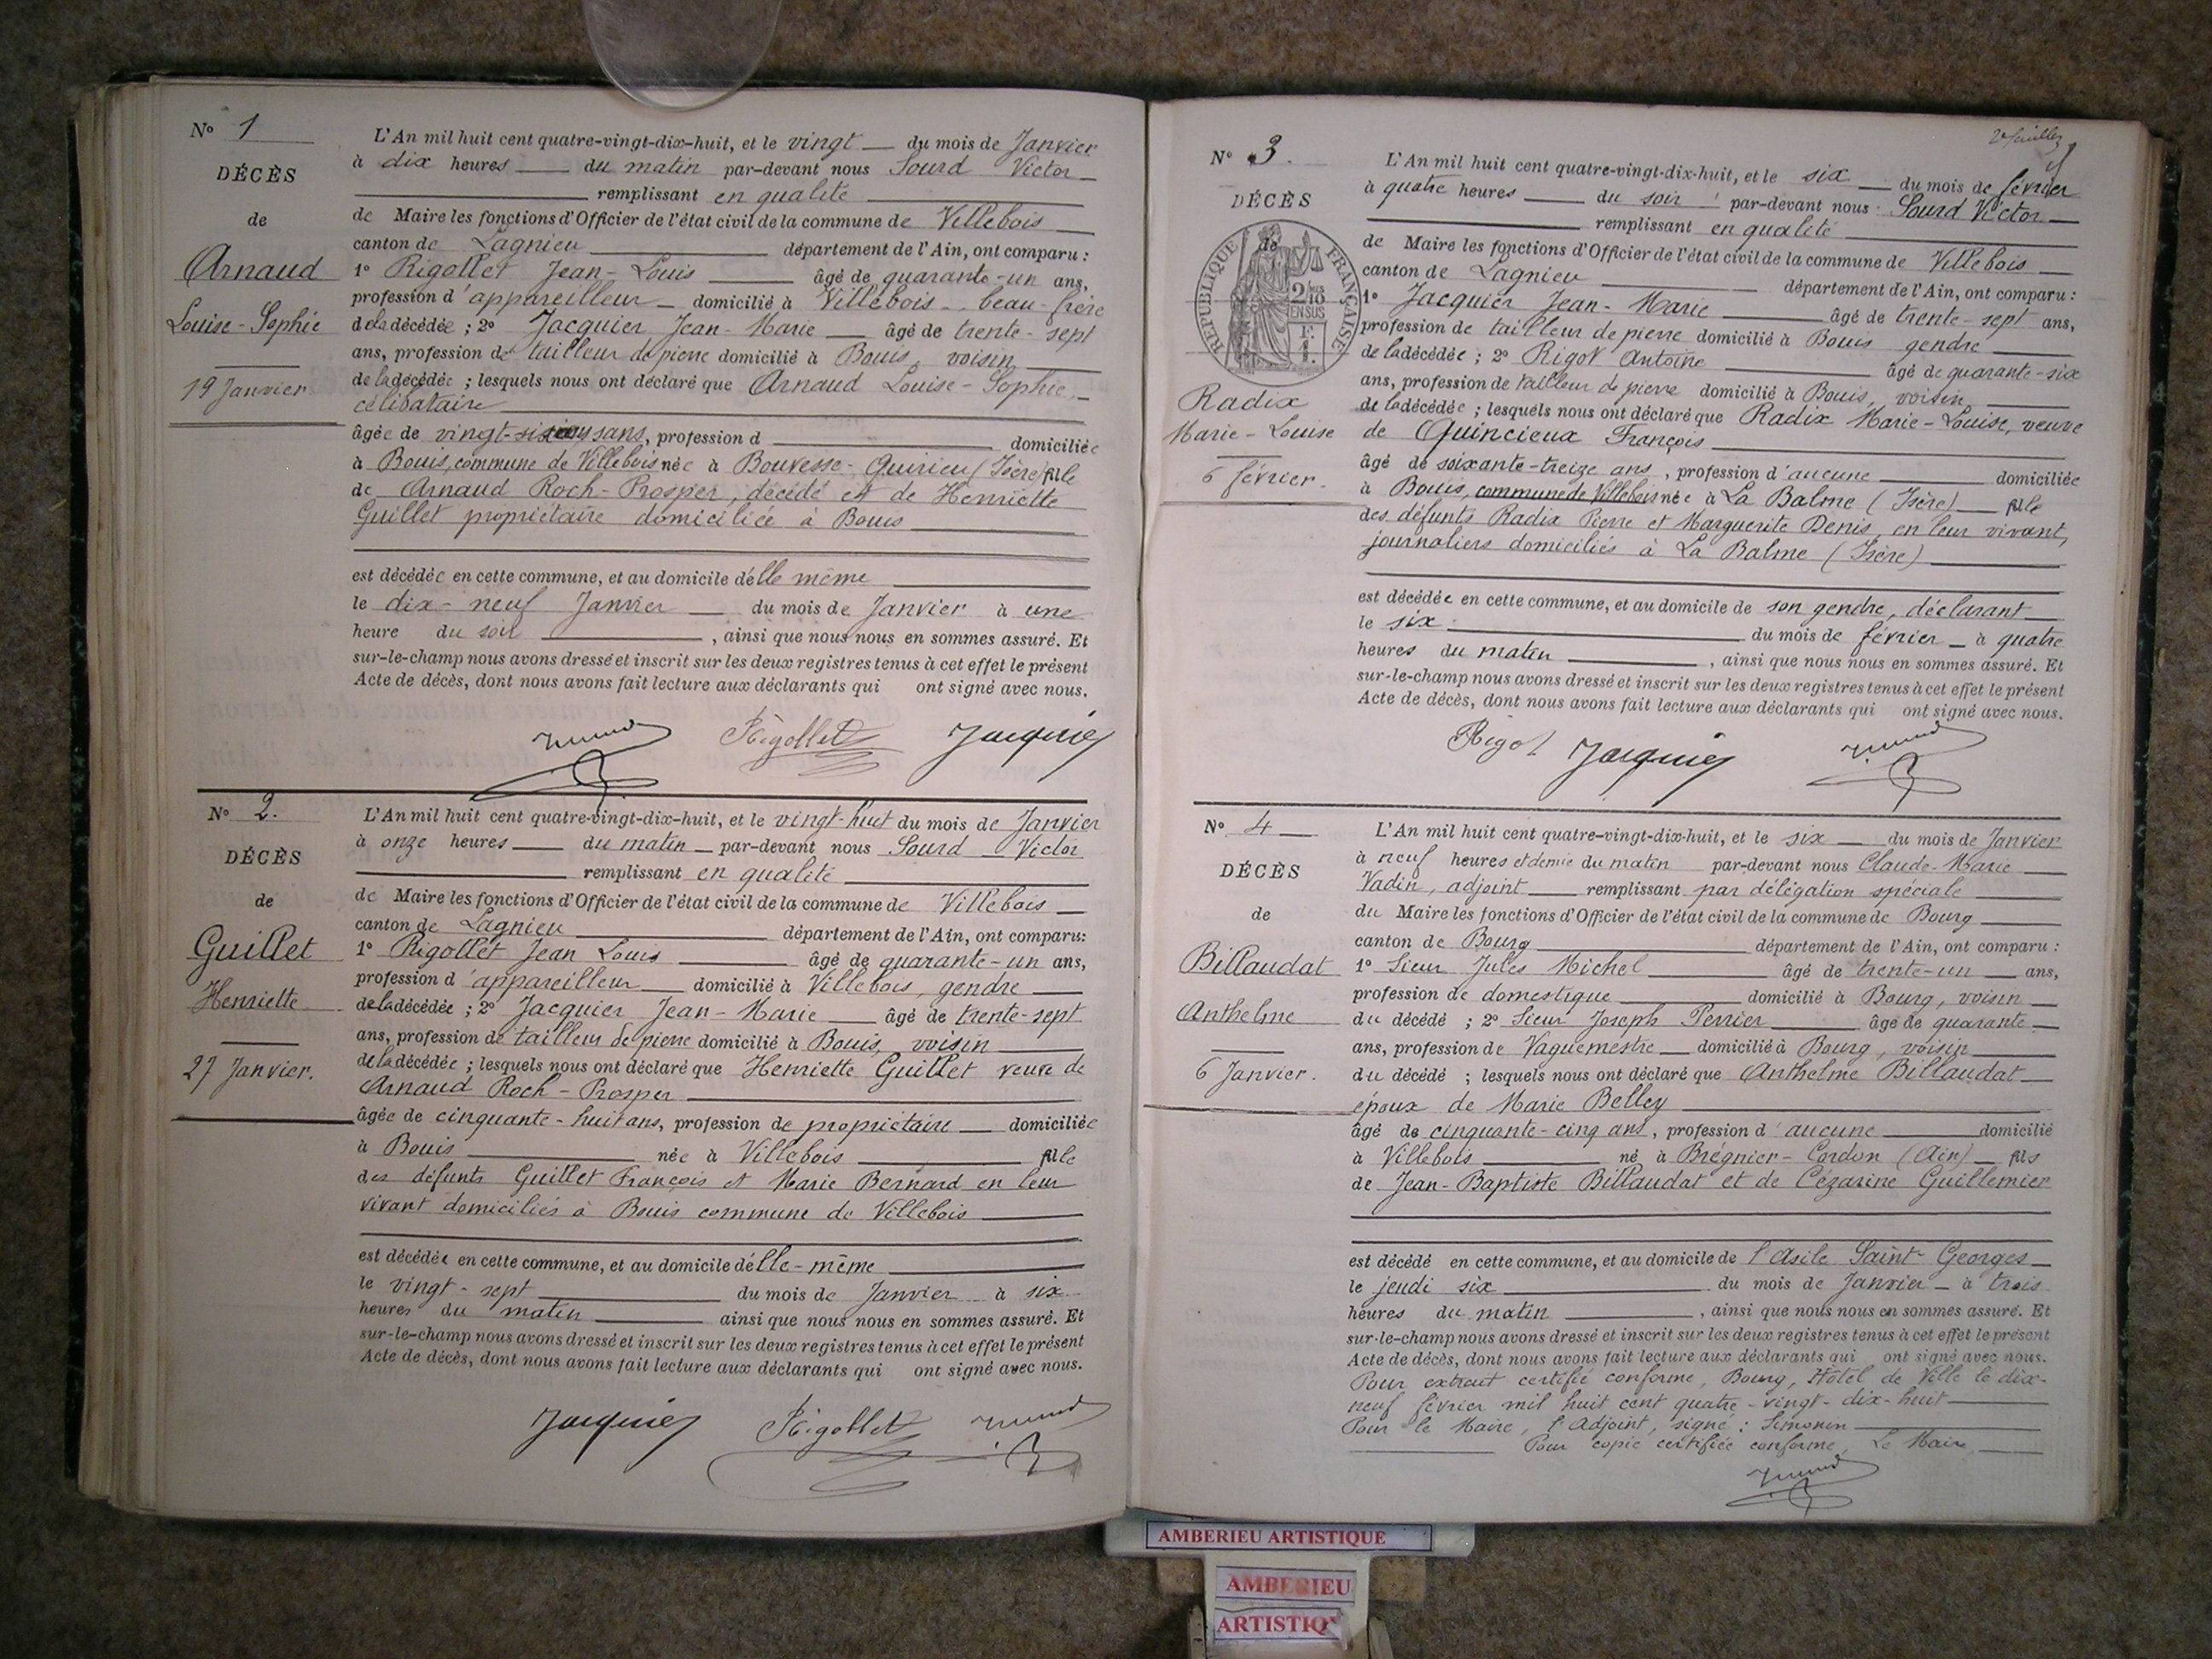 Nº 1
DÉCÈS
de
Arnaud
Louise-Sophie
19 Janvier
L'An mil huit cent quatre-vingt-dix-huit, et le vingt du mois de Janvier
à dix heures du matin par-devant nous Sourd Victor
remplissant en qualité
de Maire les fonctions d'Officier de l'état civil de la commune de Villebois
canton de Lagnieu département de l'Ain, ont comparu :
1º Rigollet Jean-Louis âgé de quarante-un ans,
profession d'appareilleur domicilié à Villebois beau-frère
de la décédée ; 2º Jacquier Jean-Marie âgé de trente-sept
ans, profession de tailleur de pierre domicilié à Bouis, voisin
de la décédée ; lesquels nous ont déclaré que Arnaud Louise-Sophie
célibataire
âgée de vingt-six ans, profession d domiciliée
à Bouis, commune de Villebois née à Bouvesse-Quirieu (Isère) fille
de Arnaud Roch-Prosper, décédé et de Henriette
Guillet propriétaire domiciliée à Bouis
est décédée en cette commune, et au domicile d'elle même
le dix-neuf Janvier du mois de Janvier à une
heure du soir , ainsi que nous nous en sommes assuré. Et
sur-le-champ nous avons dressé et inscrit sur les deux registres tenus à cet effet le présent
Acte de décès, dont nous avons fait lecture aux déclarants qui ont signé avec nous.
Rigollet Jacquier
Nº 2.
DÉCÈS
de
Guillet
Henriette
27 Janvier.
L'An mil huit cent quatre-vingt-dix-huit, et le vingt-huit du mois de Janvier
à onze heures du matin par-devant nous Sourd Victor
remplissant en qualité
de Maire les fonctions d'Officier de l'état civil de la commune de Villebois
canton de Lagnieu département de l'Ain, ont comparu:
1º Rigollet Jean Louis âgé de quarante-un ans,
profession d'appareilleur domicilié à Villebois, gendre
de la décédée ; 2º Jacquier Jean-Marie âgé de trente-sept
ans, profession de tailleur de pierre domicilié à Bouis, voisin
de la décédée ; lesquels nous ont déclaré que Henriette Guillet veuve de
Arnaud Roch-Prosper
âgée de cinquante-huit ans, profession de propriétaire domiciliée
à Bouis née à Villebois fille
des défunts Guillet François et Marie Bernard en leur
vivant domiciliés à Bouis commune de Villebois
est décédée en cette commune, et au domicile d'elle-même
le vingt-sept du mois de Janvier à six
heures du matin ainsi que nous nous en sommes assuré. Et
sur-le-champ nous avons dressé et inscrit sur les deux registres tenus à cet effet le présent
Acte de décès, dont nous avons fait lecture aux déclarants qui ont signé avec nous.
Jacquier Rigollet
2e feuillet
Nº 3.
DÉCÈS
de
RÉPUBLIQUE FRANÇAISE
2/10 EN SUS
Radix
Marie-Louise
6 février.
L'An mil huit cent quatre-vingt-dix-huit, et le six du mois de février
à quatre heures du soir par-devant nous Sourd Victor
remplissant en qualité
de Maire les fonctions d'Officier de l'état civil de la commune de Villebois
canton de Lagnieu département de l'Ain, ont comparu :
1º Jacquier Jean-Marie âgé de trente-sept ans,
profession de tailleur de pierre domicilié à Bouis gendre
de la décédée ; 2º Rigot Antoine âgé de quarante-six
ans, profession de tailleur de pierre domicilié à Bouis, voisin
de la décédée ; lesquels nous ont déclaré que Radix Marie-Louise, veuve
de Quincieux François
âgé de soixante-treize ans, profession d'aucune domiciliée
à Bouis, commune de Villebois née à La Balme (Isère) fille
des défunts Radix Pierre et Marguerite Denis, en leur vivant,
journaliers domiciliés à La Balme (Isère)
est décédée en cette commune, et au domicile de son gendre, déclarant
le six du mois de février à quatre
heures du matin , ainsi que nous nous en sommes assuré. Et
sur-le-champ nous avons dressé et inscrit sur les deux registres tenus à cet effet le présent
Acte de décès, dont nous avons fait lecture aux déclarants qui ont signé avec nous.
Rigot Jacquier
Nº 4
DÉCÈS
de
Billaudat
Anthelme
6 Janvier.
L'An mil huit cent quatre-vingt-dix-huit, et le six du mois de Janvier
à neuf heures et demie du matin par-devant nous Claude-Marie
Vadin, adjoint remplissant par délégation spéciale
du Maire les fonctions d'Officier de l'état civil de la commune de Bourg
canton de Bourg département de l'Ain, ont comparu :
1º Sieur Jules Michel âgé de trente-un ans,
profession de domestique domicilié à Bourg, voisin
du décédé ; 2º Sieur Joseph Perrier âgé de quarante
ans, profession de Vaguemestre domicilié à Bourg, voisin
du décédé ; lesquels nous ont déclaré que Anthelme Billaudat
époux de Marie Belley
âgé de cinquante-cinq ans, profession d'aucune domicilié
à Villebois né à Brégnier-Cordon (Ain) fils
de Jean-Baptiste Billaudat et de Cézarine Guillemier
est décédé en cette commune, et au domicile de l'Asile Saint-Georges
le jeudi six du mois de Janvier à trois
heures du matin , ainsi que nous nous en sommes assuré. Et
sur-le-champ nous avons dressé et inscrit sur les deux registres tenus à cet effet le présent
Acte de décès, dont nous avons fait lecture aux déclarants qui ont signé avec nous.
Pour extrait certifié conforme, Bourg, Hôtel de Ville le dix-
neuf février mil huit cent quatre-vingt-dix-huit
Pour le Maire, l'Adjoint, signé : Simonin
Pour copie certifiée conforme, Le Maire,
AMBERIEU ARTISTIQUE
AMBERIEU
ARTISTIQ